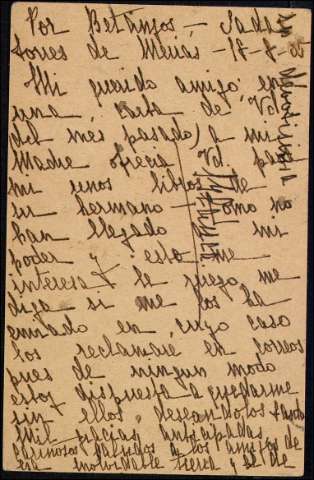 Por Betanzos - Sada
Torres de Meirás - 18-8-05
Mi querido amigo: en
una carta de Vd.
del mes pasado) a mi
Madre ofrecia Vd. para
mi unos libros de
su hermano - Como no
han llegado mi
poder y esto me
interesa le ruego me
diga si me los ha
enviado en cuyo caso
los reclamaré en correos
pues de ningun modo
estoy dispuesta a quedarme
sin ellos, deseandolos tanto
Mil gracias anticipadas
cariñosos saludos a los amigos de
esa inolvidable tierra y de